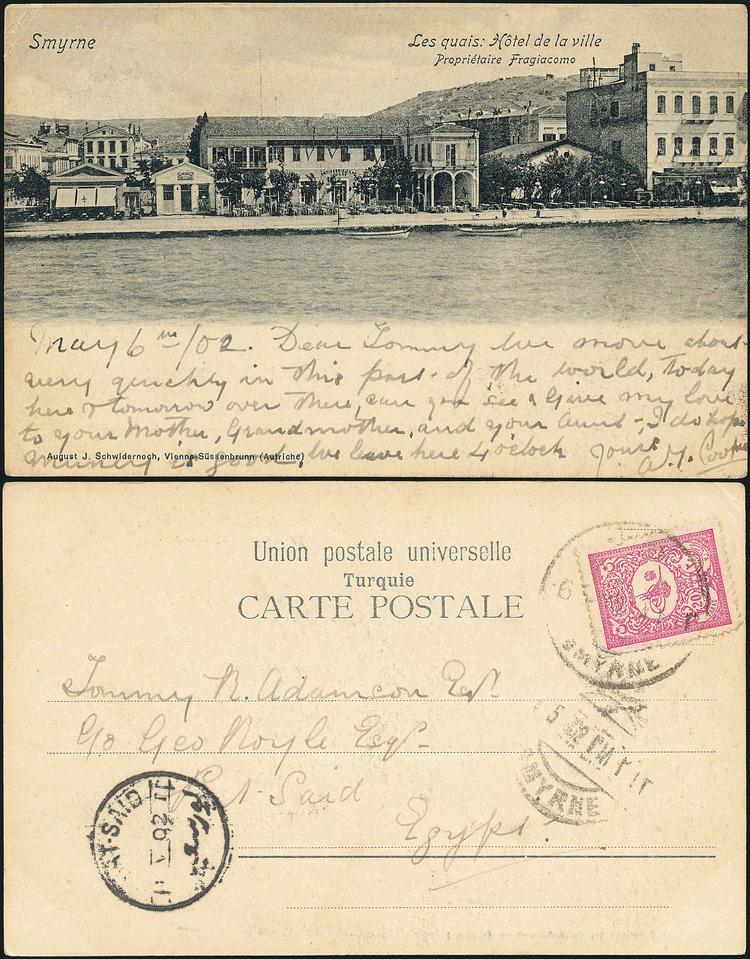 Smyrne
Les quais: Hôtel de la ville
Propriétaire Fragiacomo
May 6th/02. Dear Tommy We move about
very quickly in this part of the world, Today
here & tomorrow over there, can you see & Give my love
to your Mother, Grandmother, and your Aunt - I do hope
Mummy is good, We leave here 4 o'clock Yours
August J. Schwidernoch, Vienne-Süssenbrunn (Autriche)
Union postale universelle
Turquie
CARTE POSTALE
20
SMYRNE
Tommy R. Adamson Esq.
C/o Geo Royle Esq-
Port Said
Egypt!
SMYRNE
PORT-SAID